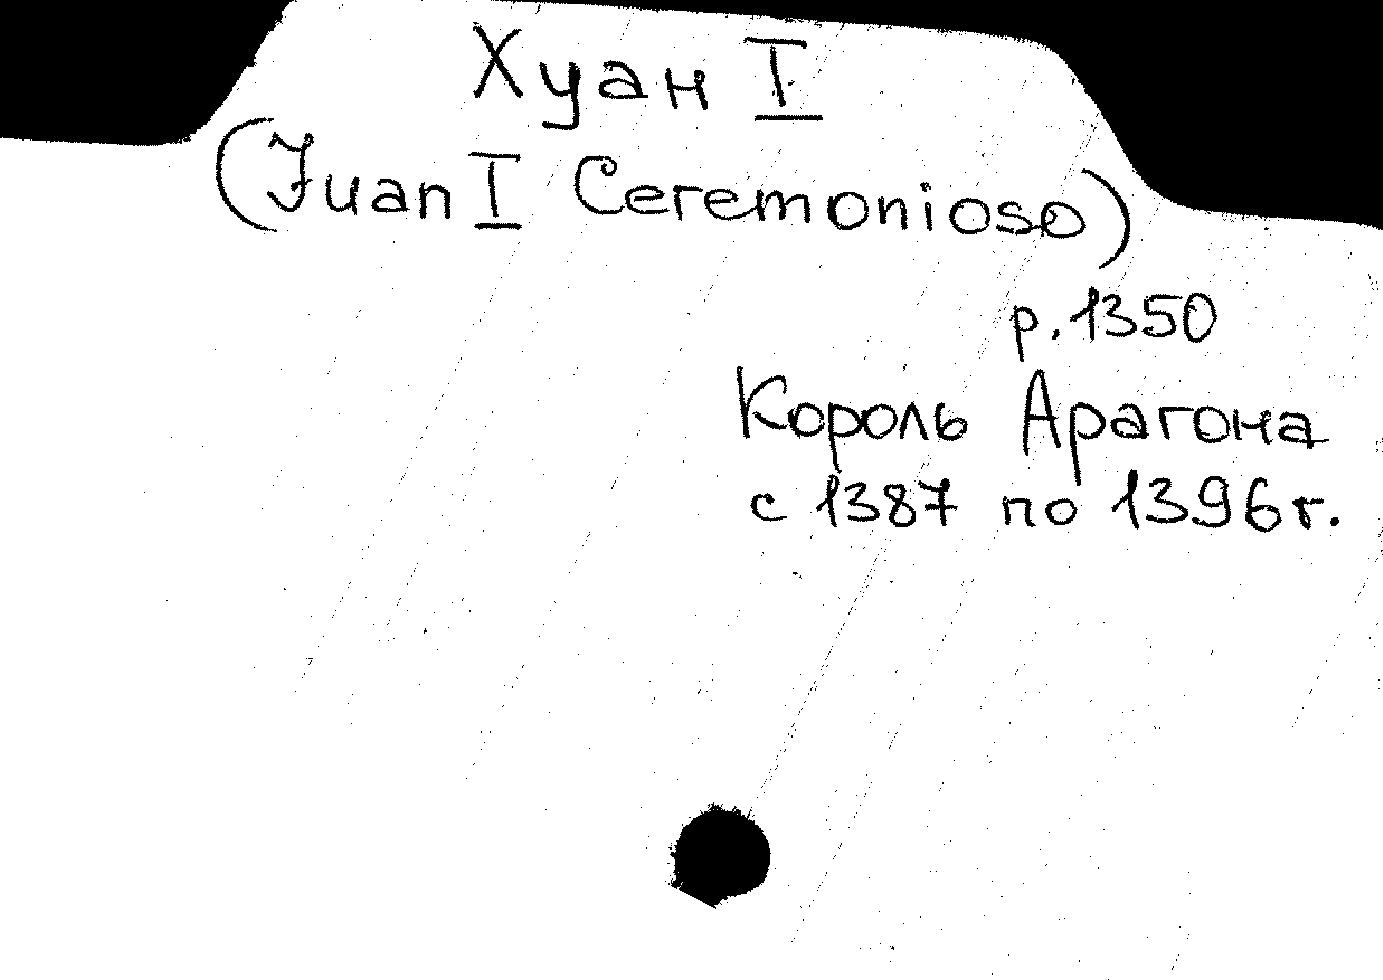 Хуан I
(Juan I Ceremonioso)
р. 1350
Король Арагона
с 1387 по 1396 г.